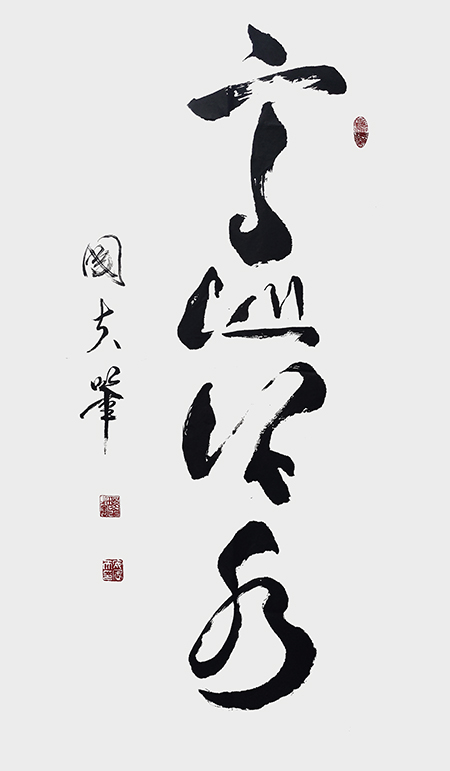 高山流水
國夫筆